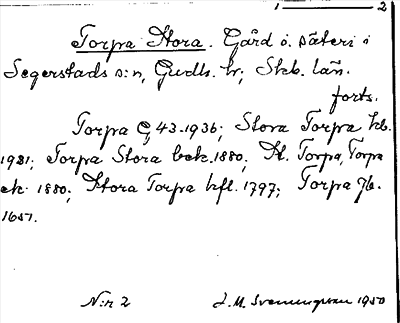 1 — 2
Torpa Stora. Gård o. säteri i
Segerstads s:n, Gudh. hr; Skb. län.
forts.
Torpa G, 43-1936; Stora Torpa hb.
1921; Torpa Stora bek. 1880; St. Torpa, Torpa
ek 1880; Stora Torpa hfl. 1797; Torpa Jb.
1651.
N:r 2 J. M. Svenungsson 1950